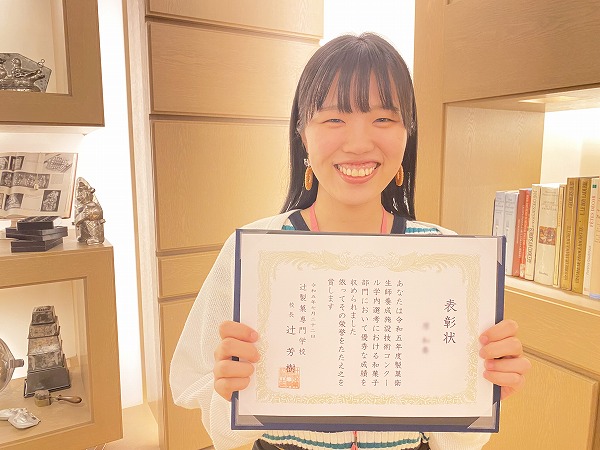 表彰状
あなたは令和五年度製菓衛
生師養成施設技術コンクー
ル学内選考における和菓子
部門において優秀な成績を
収められました
依ってその栄誉をたたえ之を
賞します
辻製菓専門学校
校長 辻 芳樹